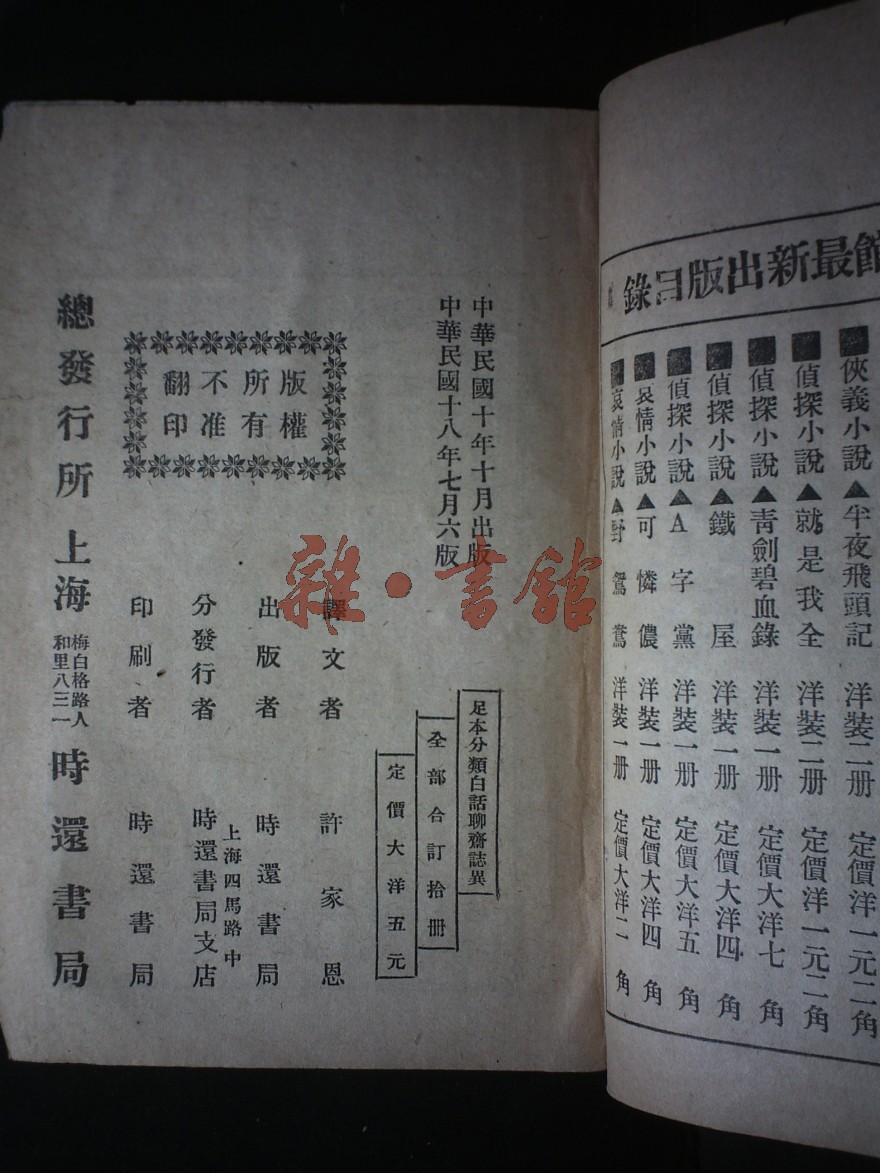 館最新出版目錄
俠義小說▲半夜飛頭記 洋裝二册 定價洋一元二角
偵探小說▲就是我全 洋裝二册 定價洋一元二角
偵探小說▲青劍碧血錄 洋裝一册 定價大洋七角
偵探小說▲鐵屋 洋裝一册 定價大洋四角
偵探小說▲A字黨 洋裝一册 定價大洋五角
哀情小說▲可憐儂 洋裝一册 定價大洋四角
哀情小說▲野鴛鴦 洋裝一册 定價大洋二角
中華民國十年十月出版
中華民國十八年七月六版
足本分類白話聊齋誌異
全部合訂拾册
定價大洋五元
版權
所有
不准
翻印
譯文者 許家恩
出版者 時還書局
分發行者 上海四馬路中
時還書局支店
印刷者 時還書局
總發行所 上海 梅白格路人
和里八三一 時還書局
雜·書館